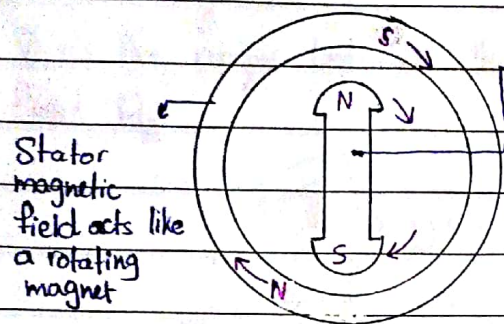 S
N
Stator
magnetic
field acts like
a rotating
magnet
S
N